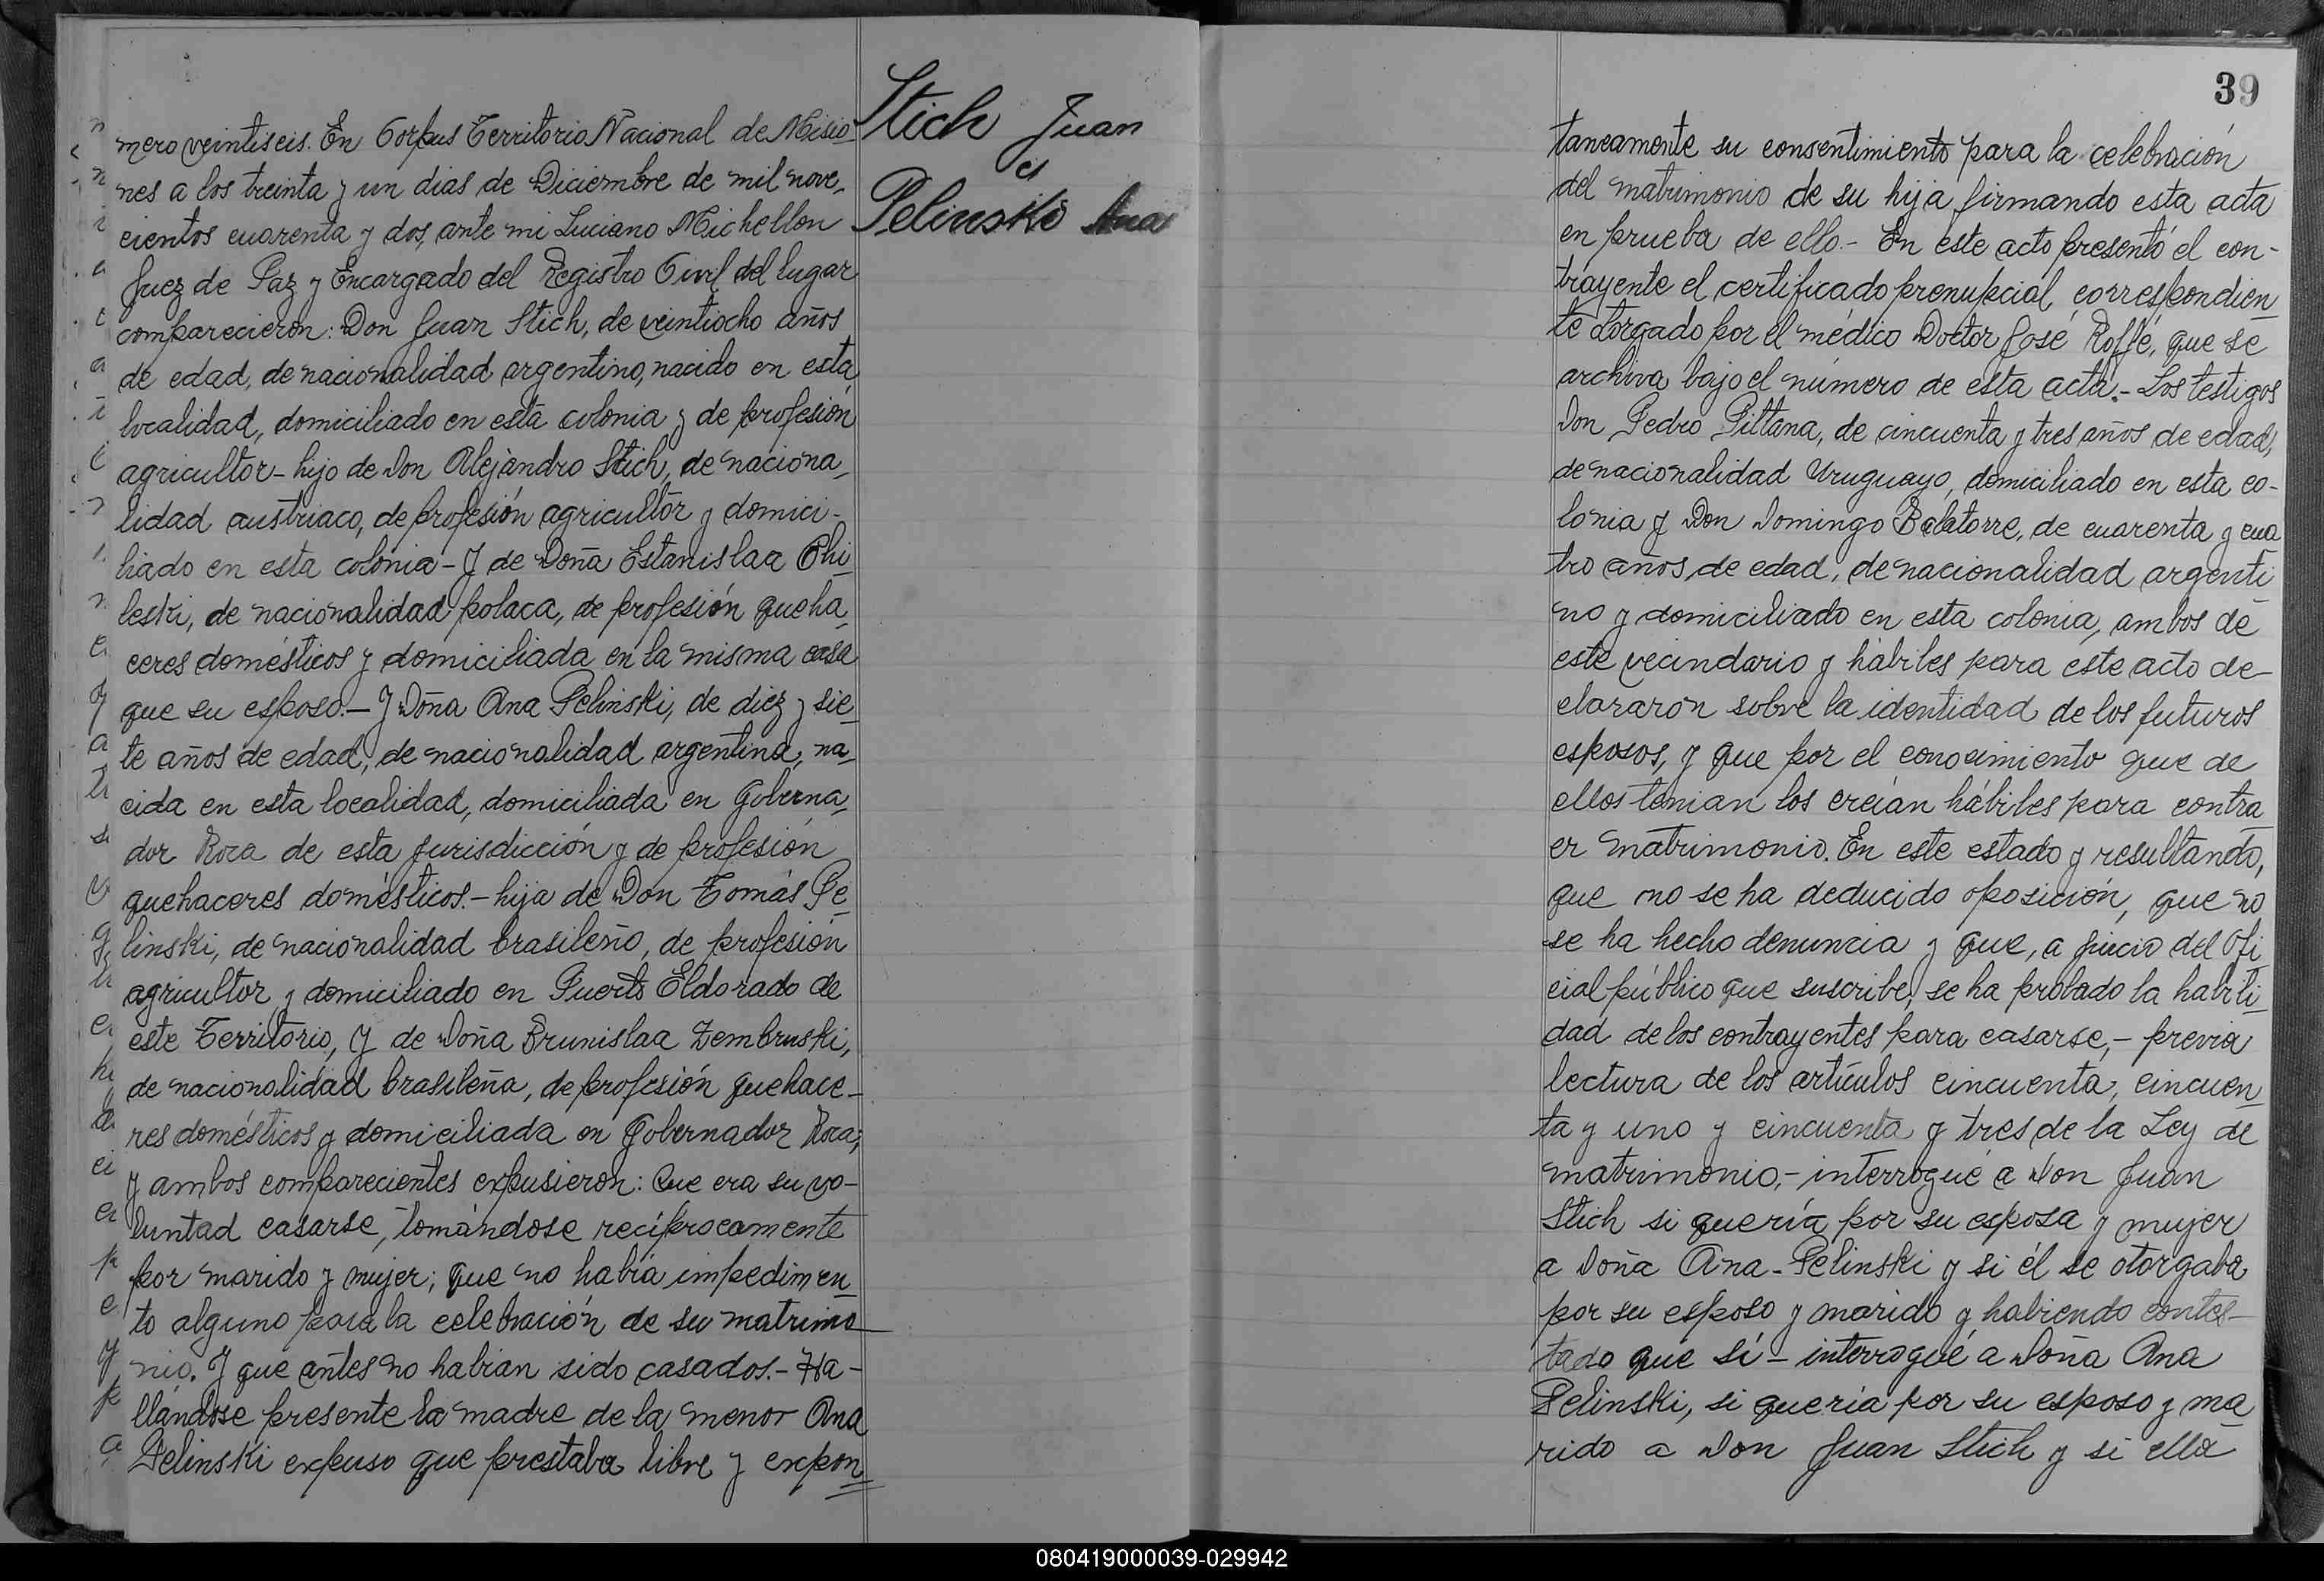 mero veintiseis. En Corpus Territorio Nacional de Misio-
nes a los treinta y un dias de Diciembre de mil nove-
cientos cuarenta y dos, ante mi Luciano Michellon
Juez de Paz y Encargado del Registro Civil del lugar
comparecieron: Don Juan Stich, de veintiocho años
de edad, de nacionalidad argentino, nacido en esta
localidad, domiciliado en esta colonia y de profesión
agricultor - hijo de Don Alejandro Stich, de naciona-
lidad austriaco, de profesión agricultor y domici-
liado en esta colonia - Y de Doña Estanislaa Chi-
leski, de nacionalidad polaca, de profesión queha-
ceres domésticos y domiciliada en la misma casa
que su esposo. - Y Doña Ana Pelinski, de diez y sie-
te años de edad, de nacionalidad argentina, na-
cida en esta localidad, domiciliada en Goberna-
dor Roca de esta jurisdicción y de profesión
quehaceres domésticos. - hija de Don Tomás Pe-
linski, de nacionalidad brasileño, de profesión
agricultor y domiciliado en Puerto Eldorado de
este Territorio, Y de Doña Brunislaa Zembruski,
de nacionalidad brasileña, de profesión quehace-
res domésticos y domiciliada en Gobernador Roca;
y ambos comparecientes expusieron: Que era su vo-
luntad casarse, tomándose recíprocamente
por marido y mujer; que no había impedimen-
to alguno para la celebración de su matrimo-
nio. Y que antes no habian sido casados. - Ha-
llándose presente la madre de la menor Ana
Pelinski expuso que prestaba libre y expon-
Stich Juan
c/
Pelinski Ana
39
taneamente su consentimiento para la celebración
del matrimonio de su hija firmando esta acta
en prueba de ello. - En este acto presentó el con-
trayente el certificado prenupcial correspondien-
te otorgado por el médico Doctor José Roffé, que se
archiva bajo el número de esta acta. - Los testigos
Don Pedro Pittana, de cincuenta y tres años de edad,
de nacionalidad Uruguayo, domiciliado en esta co-
lonia y Don Domingo Balatorre, de cuarenta y cua-
tro años de edad, de nacionalidad argenti-
no y domiciliado en esta colonia, ambos de
este vecindario y hábiles para este acto de-
clararon sobre la identidad de los futuros
esposos, y que por el conocimiento que de
ellos tenian los creían hábiles para contra-
er matrimonio. En este estado y resultando,
que no se ha deducido oposición, que no
se ha hecho denuncia y que, a juicio del Ofi-
cial público que suscribe, se ha probado la habili-
dad de los contrayentes para casarse, - previa
lectura de los artículos cincuenta, cincuen-
ta y uno y cincuenta y tres de la Ley de
matrimonio, - interrogué a Don Juan
Stich si quería por su esposa y mujer
a Doña Ana - Pelinski y si él se otorgaba
por su esposo y marido y habiendo contes-
tado que sí - interrogué a Doña Ana
Pelinski, si quería por su esposo y ma-
rido a Don Juan Stich y si ella
080419000039-029942